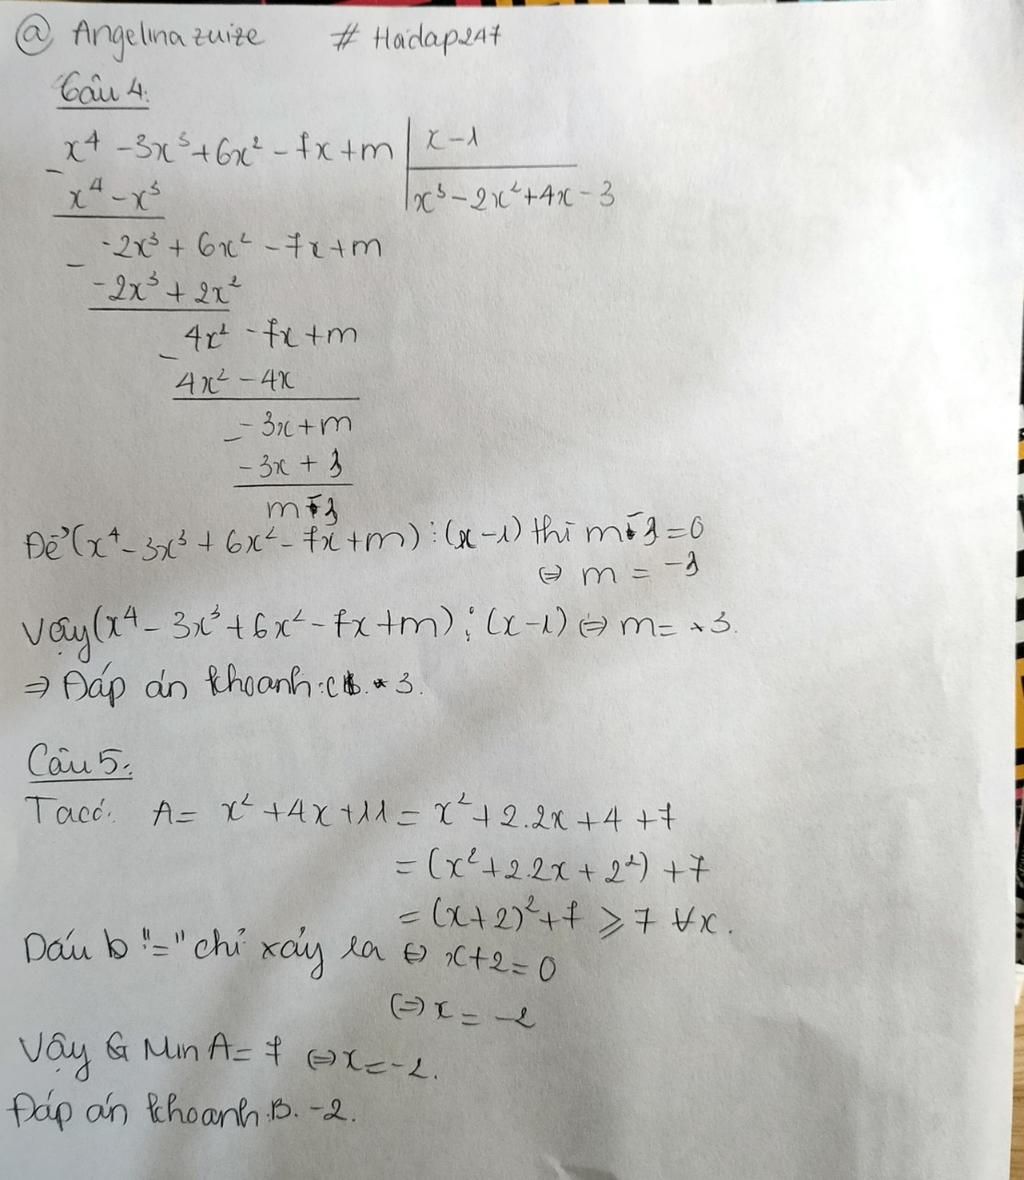 @ Angelina zuize # Hoidap247
Câu 4:
x⁴ - 3x³ + 6x² - 7x + m | x - 1
- x⁴ - x³ | x³ - 2x² + 4x - 3
-2x³ + 6x² - 7x + m
- -2x³ + 2x²
4x² - 7x + m
- 4x² - 4x
-3x + m
- -3x + 3
m - 3
Để (x⁴ - 3x³ + 6x² - 7x + m) ⋮ (x - 1) thì m - 3 = 0
⇔ m = 3
Vậy (x⁴ - 3x³ + 6x² - 7x + m) ⋮ (x - 1) ⇔ m = 3.
⇒ Đáp án khoanh: C. 3.
Câu 5:
Ta có: A = x² + 4x + 11 = x² + 2.2x + 4 + 7
= (x² + 2.2x + 2²) + 7
= (x + 2)² + 7 ⩾ 7 ∀x.
Dấu "=" chỉ xảy ra ⇔ x + 2 = 0
⇔ x = -2
Vậy Min A = 7 ⇔ x = -2.
Đáp án khoanh B. -2.